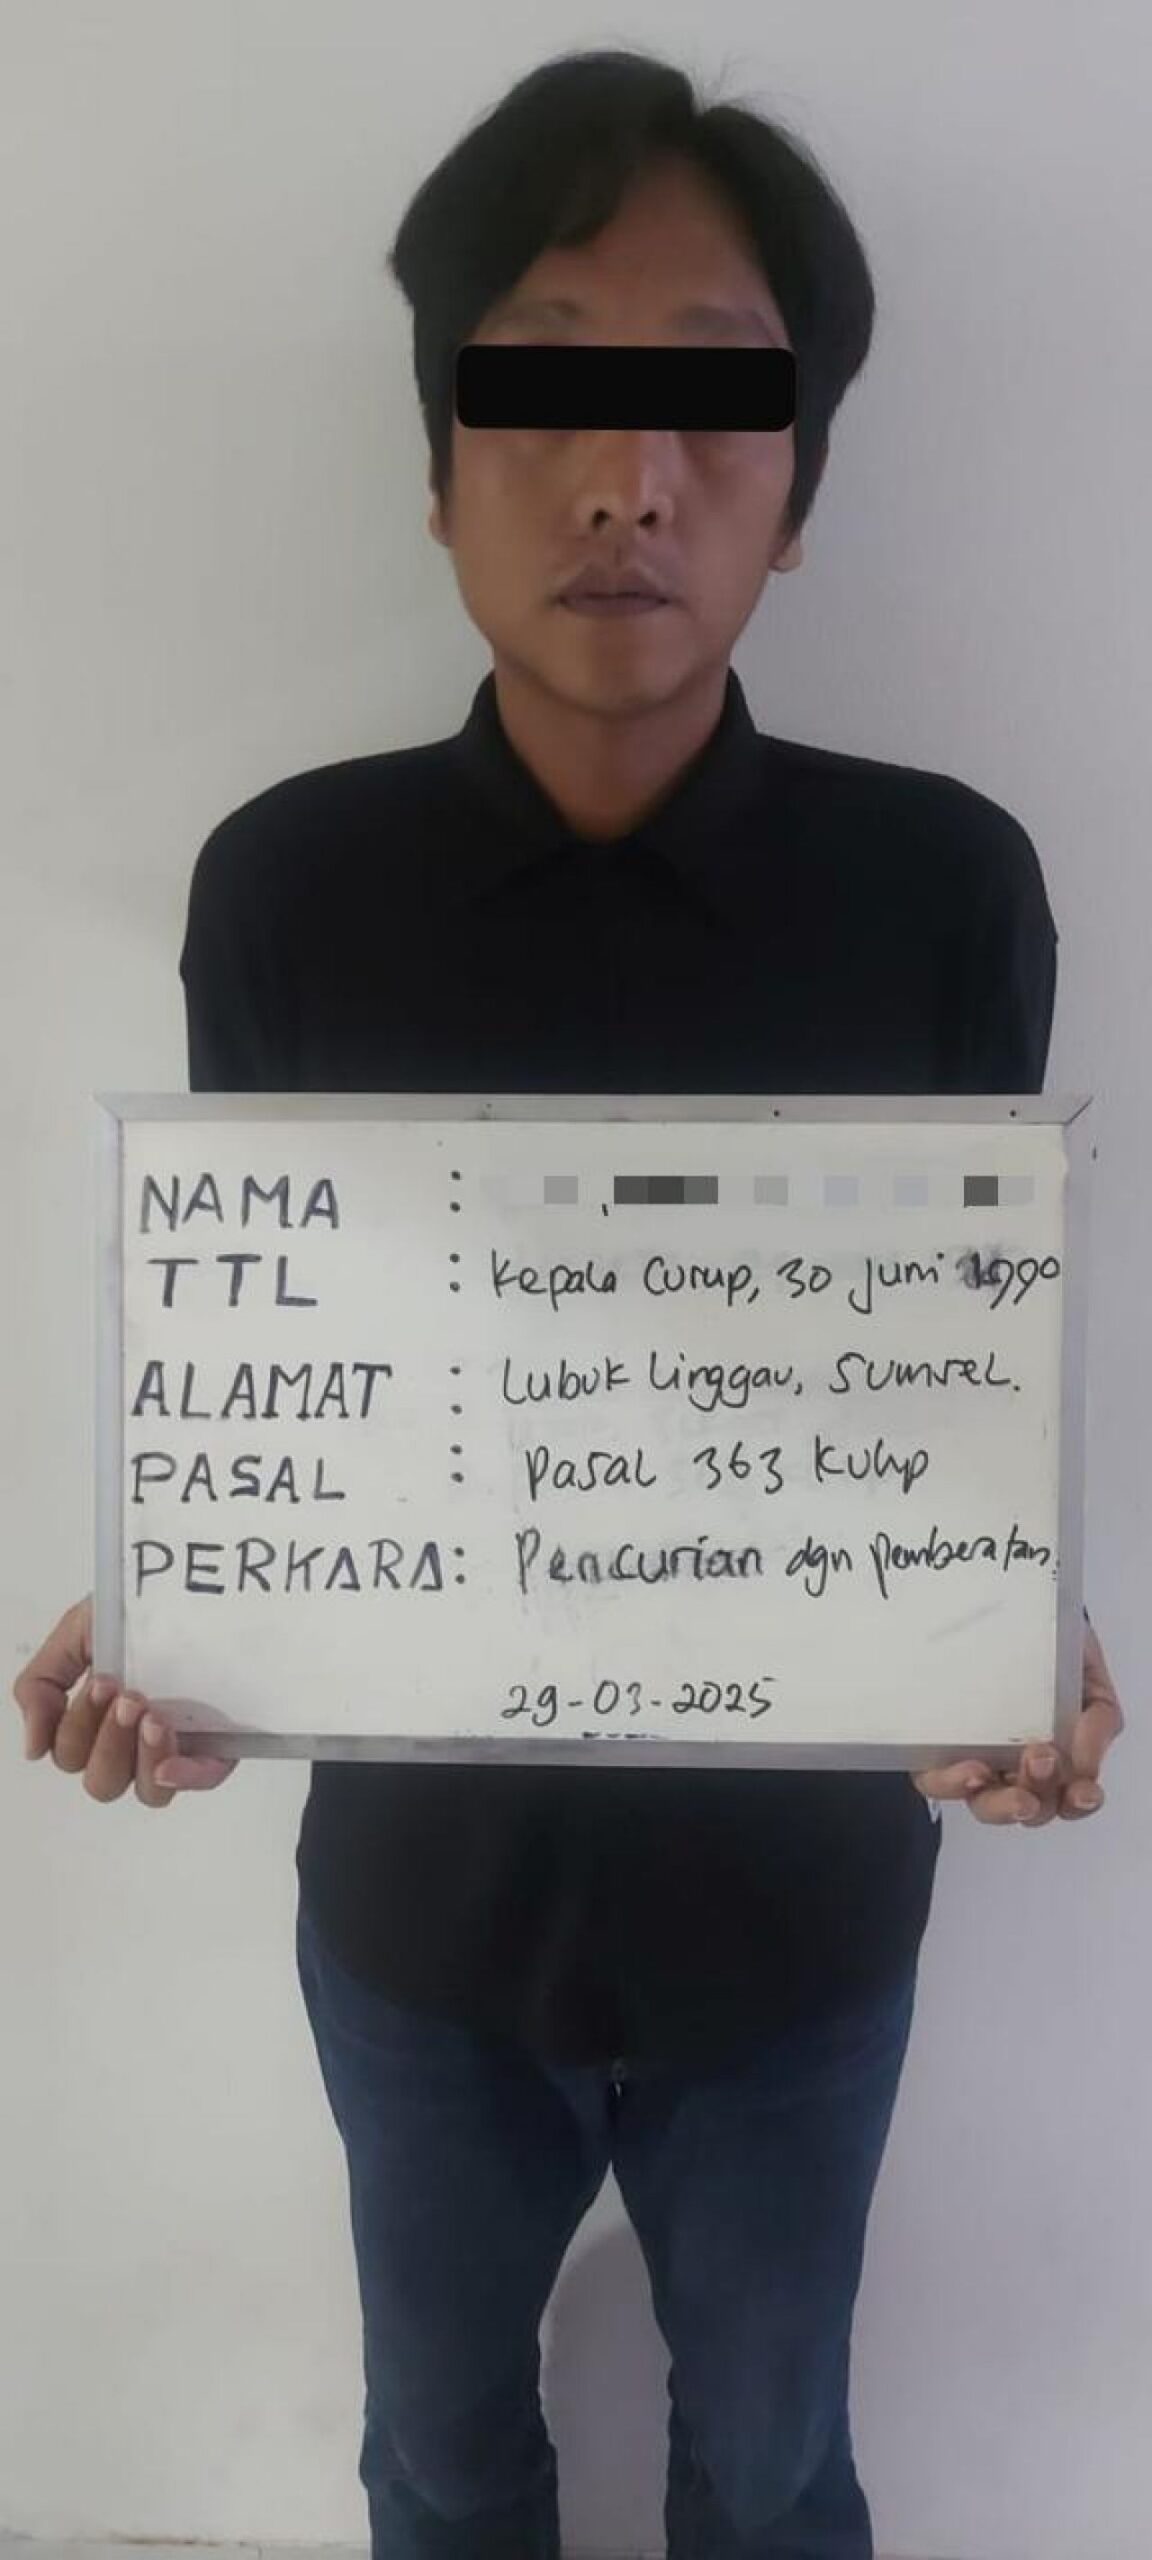 NAMA :
TTL : Kepala Curup, 30 Juni 1990
ALAMAT : Lubuk Linggau, SUMSEL.
PASAL : Pasal 363 KUHP
PERKARA : Pencurian dgn pemberatan.
29-03-2025